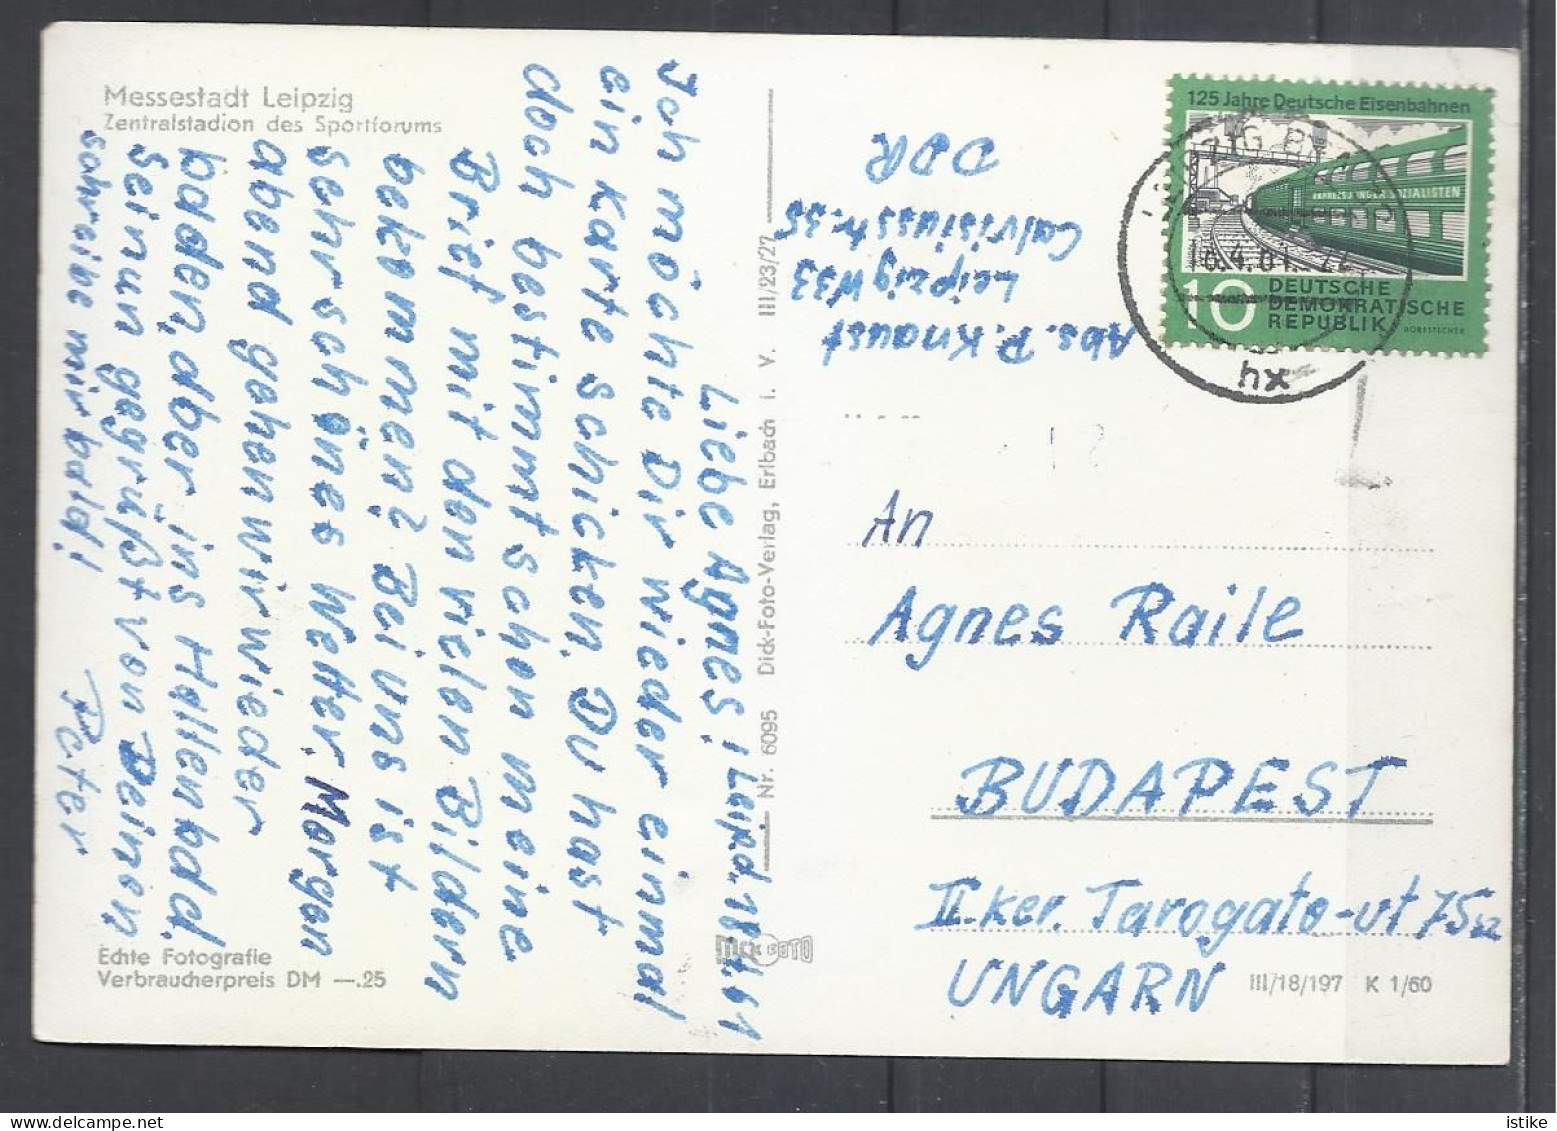 Messestadt Leipzig
Zentralstadion des Sportforums
Liebe Agnes! Leipz. 18.4.61
Ich möchte Dir wieder einmal
ein karte schicken. Du hast
doch bestimmt schon meine
Brief mit den vielen Bildern
bekommen? Bei uns ist
sehr schönes Wetter. Morgen
abend gehen wir wieder
baden, aber ins Hallenbad.
Sei nun gegrüßt von Deinen
Peter
schreibe mir bald!
Echte Fotografie
Verbraucherpreis DM —.25
Nr. 6095 Dick-Foto-Verlag, Erlbach i. V. III/23/27
FOTO
Abs. P. Knaust
Leipzig W33
Calvisiusstr. 35
DDR
125 Jahre Deutsche Eisenbahnen
SOZIALISTEN
10
DEUTSCHE
DEMOKRATISCHE
REPUBLIK
DORFSTECHER
hx
An
Agnes Raile
BUDAPEST
II. ker. Tarogato-ut 75
UNGARN
III/18/197 K 1/60
istike